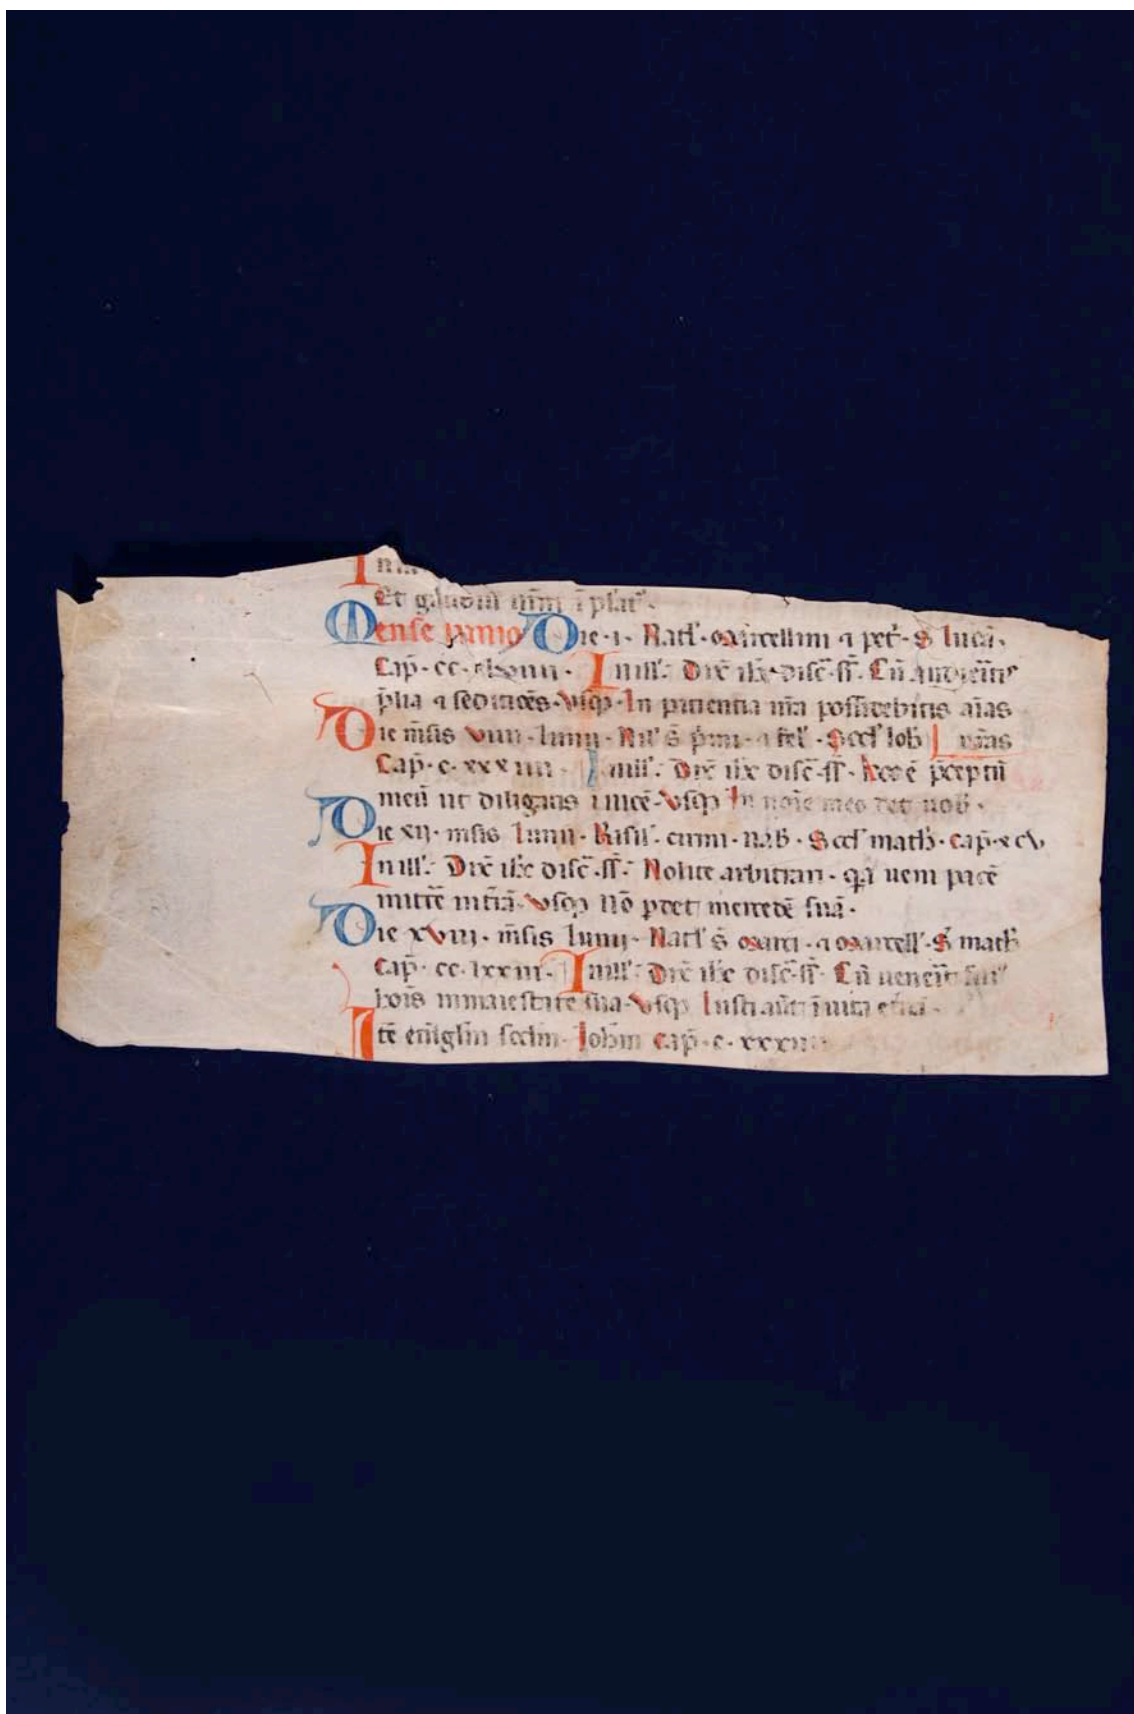 In
Et gaudiū nr̄m ī plat᷑.
Mense iunio Die · i · Natl᷑ · Marcellini ⁊ pet᷑ · S᷑ lucā.
Cap̄ · cc · In ill᷑. Dix̄ ih̄c disc̄ · ff᷑ · Cū audieītis
p̄lia ⁊ seditiōes · vsq̨ · In patientia ur̄a possidebitis aīas
Die m̄sis viiii · Iunii · Nat᷑ s̄ p̄mi · ⁊ fel᷑ · Sccl᷑ Ioh̄
Cap̄ · c · xxxiiii · In ill᷑. Dix̄ ih̄c disc̄ · ff᷑ · hoc ē p̄ceptū
meū ut diligatis inuicē · vsq̨ In noīe meo det uob᷑ ·
Die xij · m̄sis Iunii · Basil᷑ · cirini · nab᷑ · Sccl᷑ math᷑ · cap̄ · xcv
In ill᷑. Dix̄ ih̄c disc̄ · ff᷑ · Nolite arbitrari · q̄a ueni pacē
mittē in t̄rā · vsq̨ Nō p̄det mercedē suā ·
Die xviij · m̄sis Iunij · Natl᷑ s̄ Marci · ⁊ Marcell᷑ · S᷑ math᷑
Cap̄ · cc · lxxiii · In ill᷑. Dix̄ ih̄c disc̄ · ff᷑ · Cū uenēit fili᷑
hoīs in maiestate sua · vsq̨ Iusti aūt ī uitā et̄nā ·
Itē euḡlm̄ sccdm̄ · Ioh̄m cap̄ · c ·